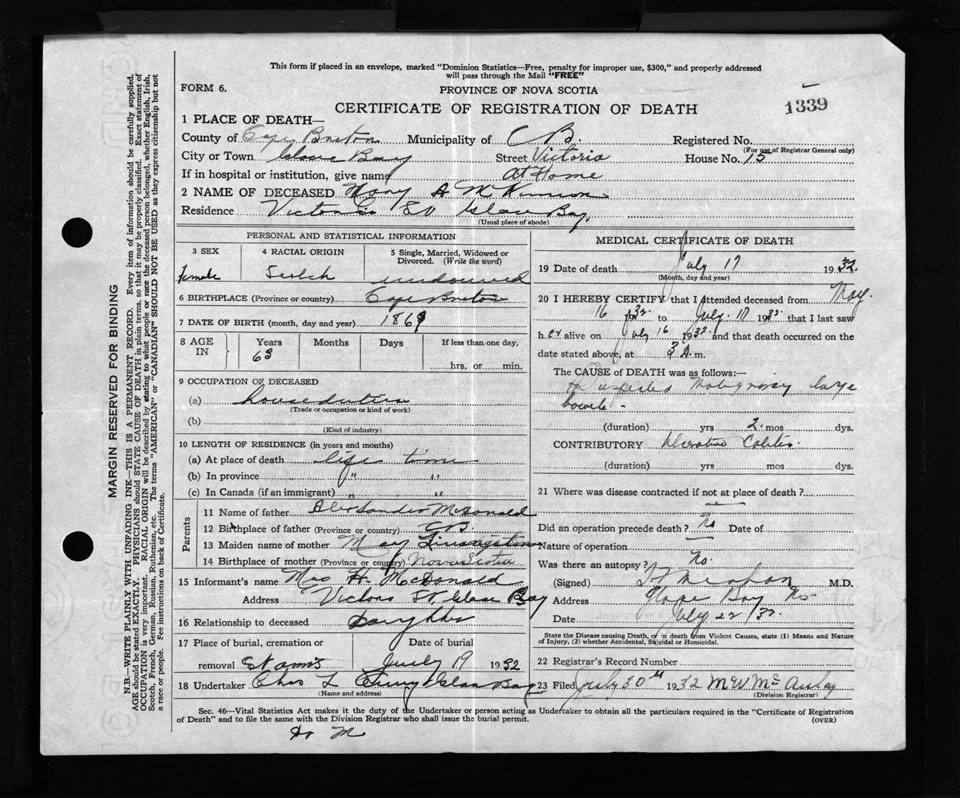 This form if placed in an envelope, marked "Dominion Statistics—Free, penalty for improper use, $300," and properly addressed
will pass through the Mail "FREE"
FORM 6. PROVINCE OF NOVA SCOTIA
CERTIFICATE OF REGISTRATION OF DEATH 1339
1 PLACE OF DEATH—
County of Cape Breton Municipality of C B. Registered No.
(For use of Registrar General only)
City or Town Glace Bay Street Victoria House No. 15
If in hospital or institution, give name At Home
2 NAME OF DECEASED Mary A McKinnon
Residence Victoria St Glace Bay,
(Usual place of abode)
PERSONAL AND STATISTICAL INFORMATION
3 SEX 4 RACIAL ORIGIN 5 Single, Married, Widowed or
Divorced. (Write the word)
Female widowed
6 BIRTHPLACE (Province or country) Cape Breton
7 DATE OF BIRTH (month, day and year) 1869
8 AGE IN Years Months Days If less than one day.
63 hrs. or min.
9 OCCUPATION OF DECEASED
(a) house duties
(Trade or occupation or kind of work)
(b)
(Kind of industry)
10 LENGTH OF RESIDENCE (in years and months)
(a) At place of death life time
(b) In province " "
(c) In Canada (if an immigrant) " "
Parents
11 Name of father Alexander McDonald
12 Birthplace of father (Province or country) C B.
13 Maiden name of mother Mary Livingston
14 Birthplace of mother (Province or country) Nova Scotia
15 Informant's name Mrs H. McDonald
Address Victoria St. Glace Bay
16 Relationship to deceased Daughter
17 Place of burial, cremation or Date of burial
removal St Anns July 19 1932
18 Undertaker Chas L Glace Bay
(Name and address)
MEDICAL CERTIFICATE OF DEATH
19 Date of death July 17 1932.
(Month, day and year)
20 I HEREBY CERTIFY that I attended deceased from May
16 1932 to July 17 1932 that I last saw
h er alive on July 16 1932 and that death occurred on the
date stated above, at 3 A. m.
The CAUSE of DEATH was as follows:—
Malignancy large
bowels -
(duration) yrs 2 mos dys.
CONTRIBUTORY Ulcerative Colitis
(duration) yrs mos dys.
21 Where was disease contracted if not at place of death?
Did an operation precede death? No Date of
Nature of operation
Was there an autopsy? No.
(Signed) M.D.
Address Glace Bay NS
Date July 22/32.
State the Disease causing Death, or in death from Violent Causes, state (1) Means and Nature
of Injury, (2) whether Accidental, Suicidal or Homicidal.
22 Registrar's Record Number
23 Filed July 30th 1932 M W McAulay
(Division Registrar)
Sec. 46—Vital Statistics Act makes it the duty of the Undertaker or person acting as Undertaker to obtain all the particulars required in the "Certificate of Registration
of Death" and to file the same with the Division Registrar who shall issue the burial permit. (OVER)
MARGIN RESERVED FOR BINDING
N.B.—WRITE PLAINLY WITH UNFADING INK—THIS IS A PERMANENT RECORD. Every item of information should be carefully supplied.
AGE should be stated EXACTLY. PHYSICIANS should STATE CAUSE OF DEATH in plain terms, so that it may be properly classified. Exact statement of
OCCUPATION is very important. RACIAL ORIGIN will be described by stating to what people or race the deceased person belonged, whether English, Irish,
Scotch, French, German, Russian, Ruthenian, etc. The terms "AMERICAN" or "CANADIAN" SHOULD NOT BE USED as they express citizenship but not
a race or people. See instructions on back of Certificate.